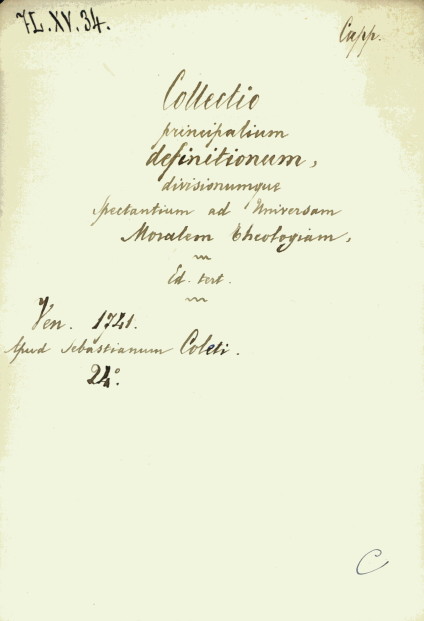 7L.XV.34.
Capp.
Collectio
principalium
definitionum,
divisionumque
spectantium ad Universam
Moralem Theologiam,
Ed. tert.
Ven. 1741.
Apud Sebastianum Coleti.
24°.
C